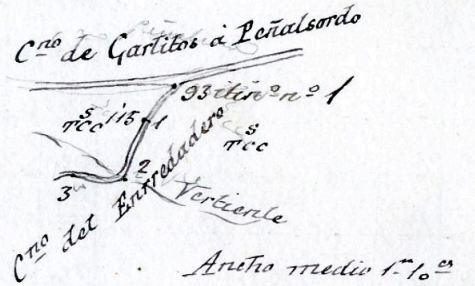 Cno de Garlitos á Peñalsordo
93 itinº nº 1
S
rcc
115
1
S
rcc
2
3
Cno del Entredadero
Vertiente
Ancho medio 1m